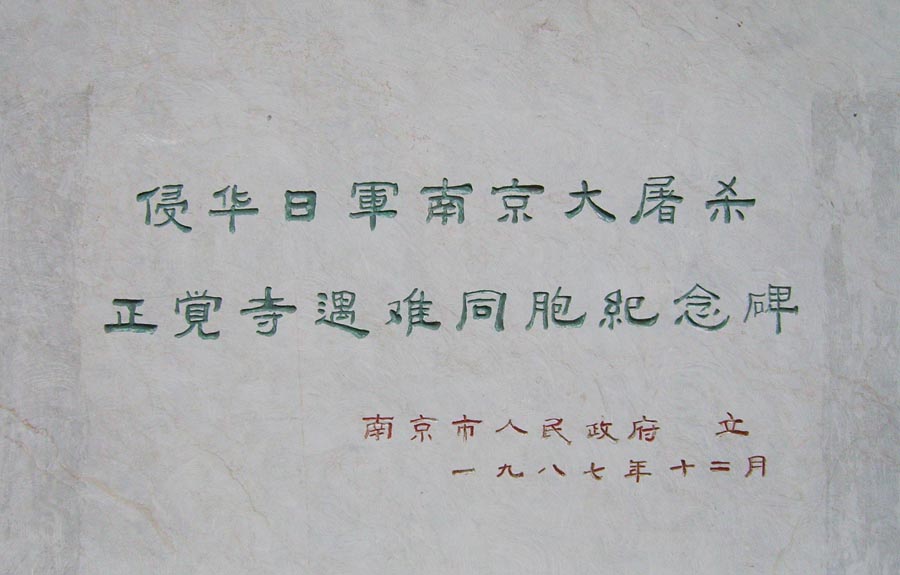 侵华日軍南京大屠杀
正覚寺遇难同胞紀念碑
南京市人民政府 立
一九八七年十二月